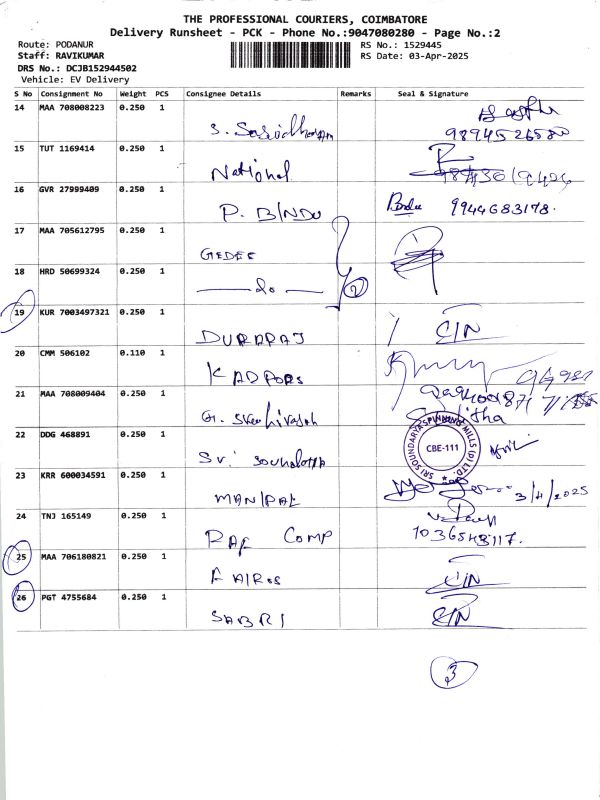 THE PROFESSIONAL COURIERS, COIMBATORE
Delivery Runsheet - PCK - Phone No.:9047080280 - Page No.:2
Route: PODANUR
Staff: RAVIKUMAR
DRS No.: DCJB152944502
Vehicle: EV Delivery
RS No.: 1529445
RS Date: 03-Apr-2025
S No Consignment No Weight PCS Consignee Details Remarks Seal & Signature
14 MAA 708008223 0.250 1
9894526580
15 TUT 1169414 0.250 1
National
16 GVR 27999409 0.250 1
P. BINDU 9944683178.
17 MAA 705612795 0.250 1
GEDEE
18 HRD 50699324 0.250 1
— do — 2
19 KUR 7003497321 0.250 1
DURARAJ
20 CMM 506102 0.110 1
21 MAA 708009404 0.250 1
22 DDG 468891 0.250 1
SRI SOUNDARYA SPINNING MILLS (P) LTD.
CBE-111
23 KRR 600034591 0.250 1
MANIPAL 3/4/2025
24 TNJ 165149 0.250 1
RAF COMP
25 MAA 706180821 0.250 1
FAIROS
26 PGT 4755684 0.250 1
SABRI
3